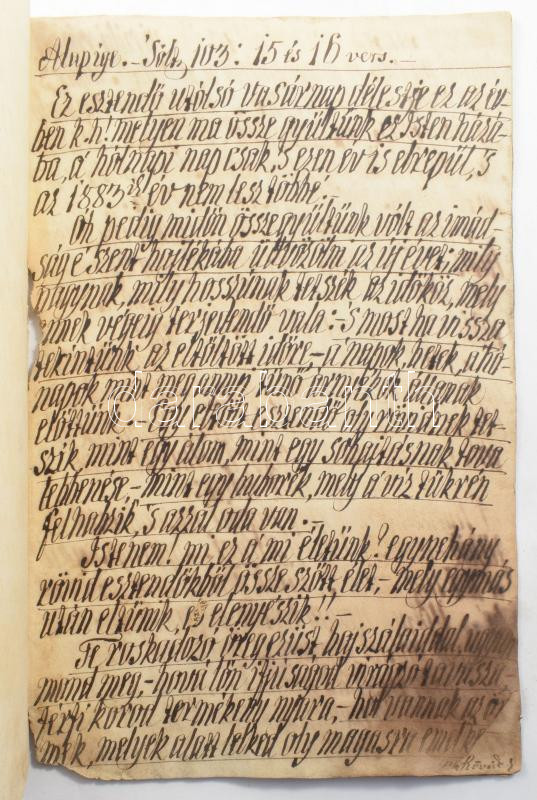 Alapige. Sólt. 103: 15 és 16 vers.
Ez esztendő utolsó vasárnap délestje ez az év-
ben k. h! melyen ma össze gyűltünk ez Isten házá-
ba, a' holnapi nap csak, 's ezen év is elrepül, 's
az 1883ik év nem lesz többé,
Oh pedig midőn összegyűltünk vólt az imád-
ság e szent hajlékába az új évet: mily
nagynak, mily hosszúnak tetszék az időköz, mely
ennek végeig terjedendő vala: - 's most ha vissza
tekintünk az eltöltött időre, - a' napok, hetek, a hó-
napok mint megannyi tűnő
előttünk. - Egy esztendő tet-
szik, mint egy álom, mint egy sóhajtásnak tova
lebbenése - mint egy buborék, mely a' víz tükrén
felhabzik, 's azzal oda van. -
Istenem! mi ez a' mi életünk? egynehány
rövid esztendőkből össze szőtt élet, - mely egymás
után eltűnik, és elenyészik!! -
Te, roskadozó öreg ezüst hajszálaiddal,
mond meg, - hová lőn ifjúságod virágzó tavasza
férfi korod termékeny nyara, - hol vannak az ör-
mek, melyek alatt lelked oly magasra emel
darabanth